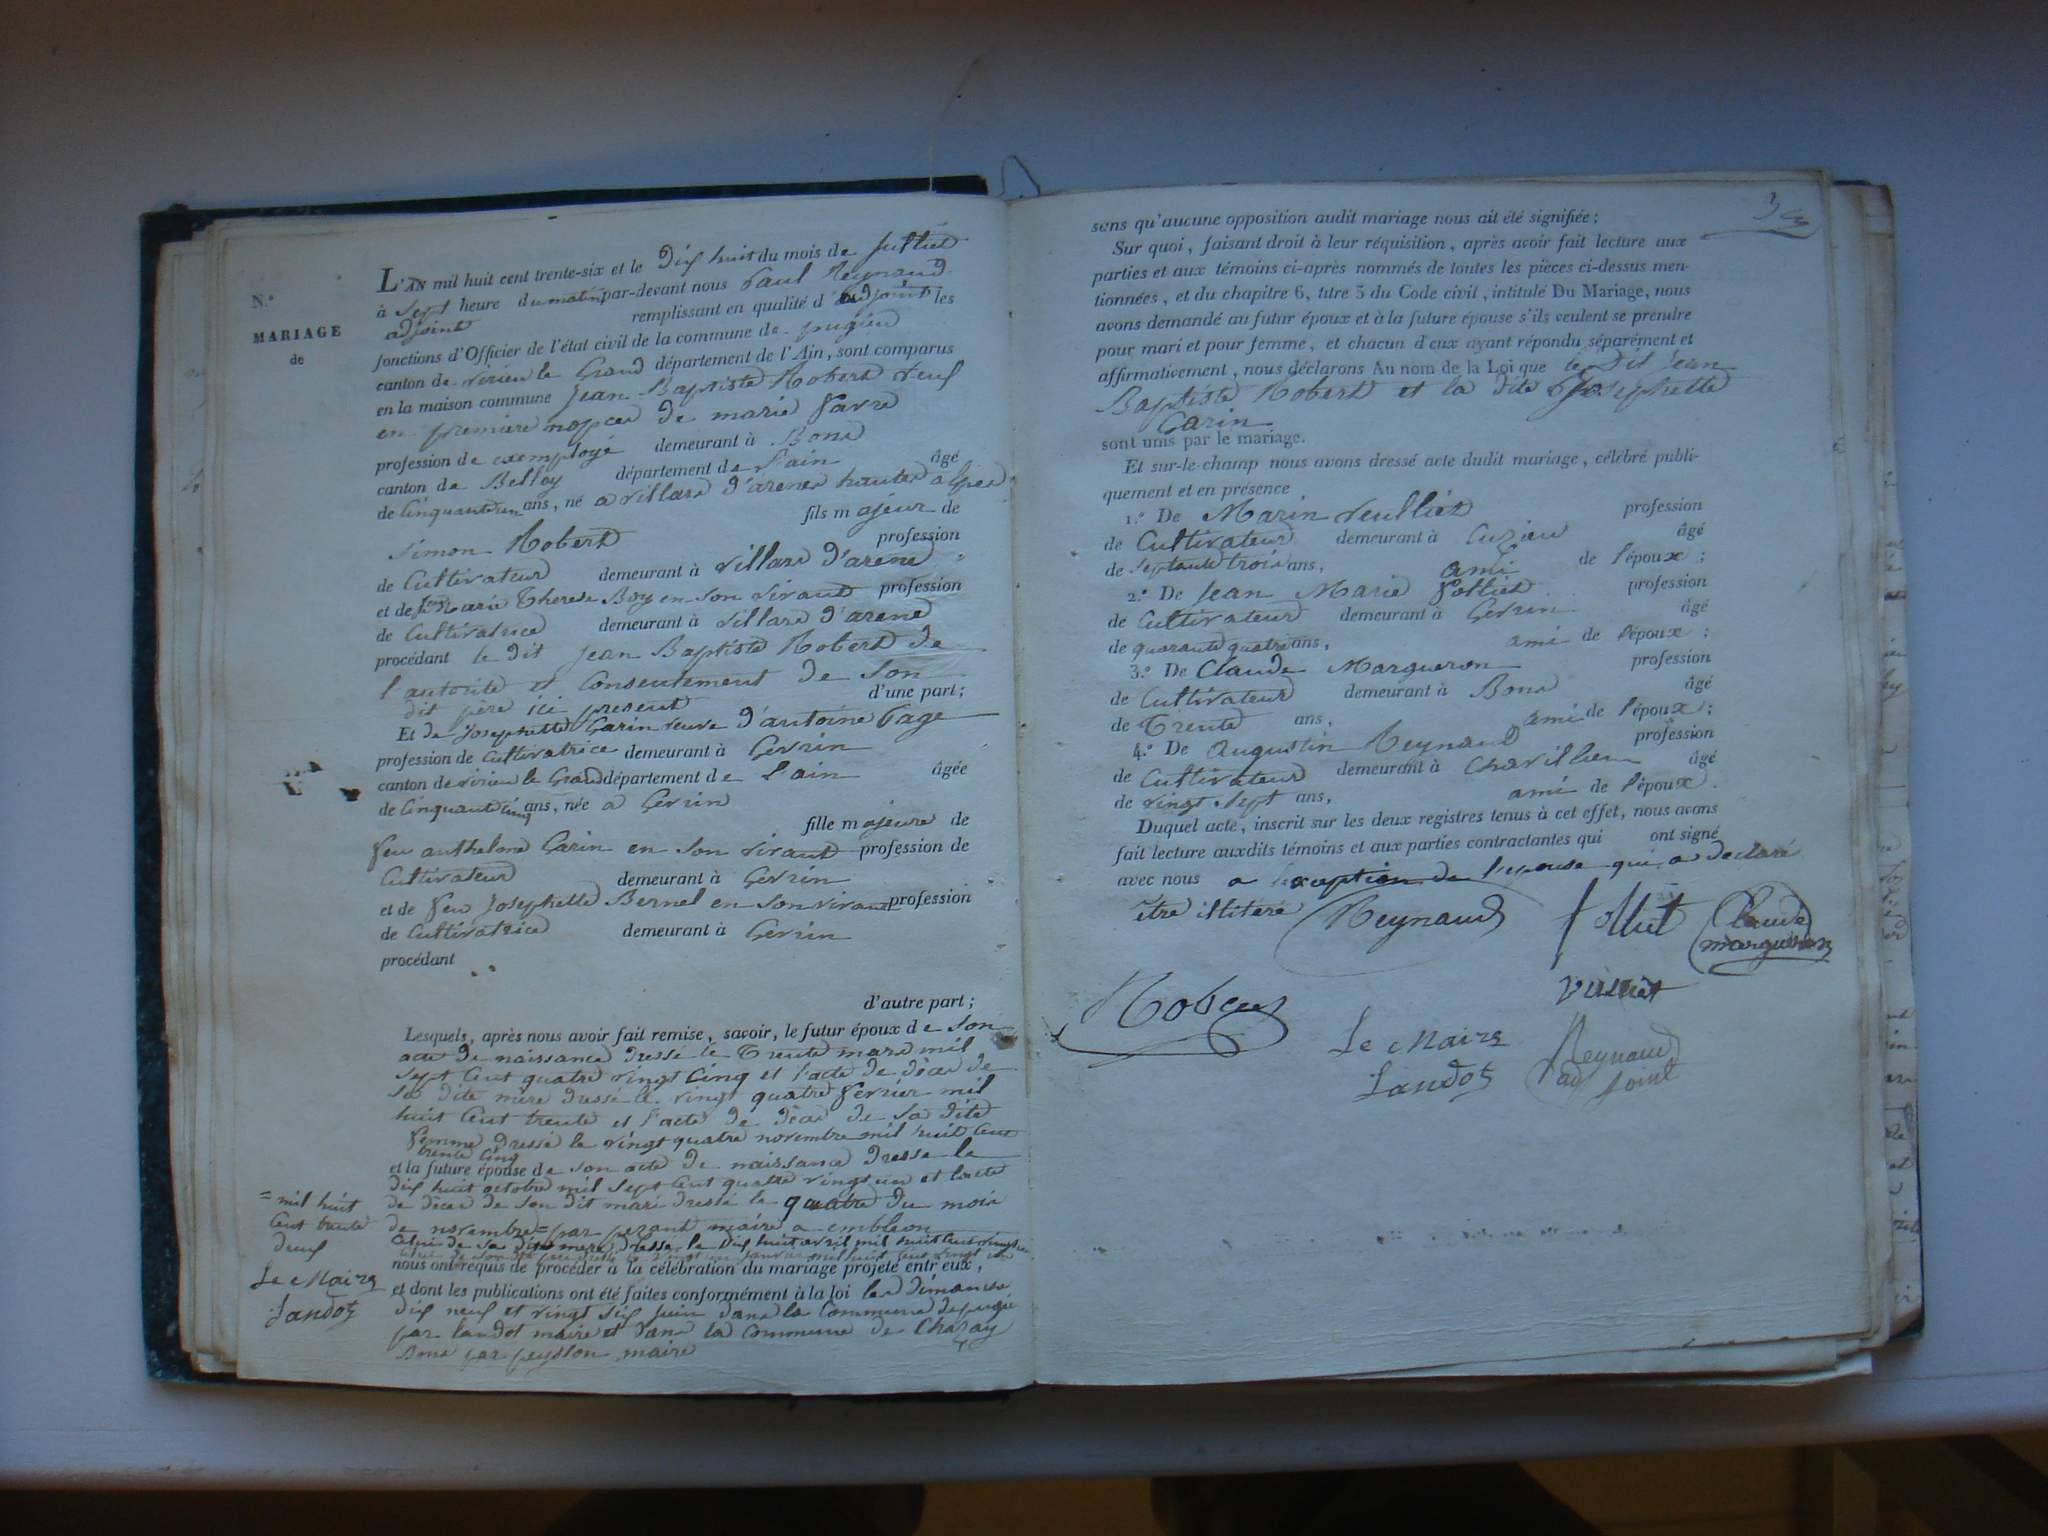 N.o
MARIAGE
de
L'AN mil huit cent trente-six et le dix huit du mois de juillet
à Sept heure du matin par-devant nous Paul Reynaud
adjoint remplissant en qualité d'adjoint les
fonctions d'Officier de l'état civil de la commune de pugieu
canton de virieu le Grand département de l'Ain, sont comparus
en la maison commune Jean Baptiste Robert veuf
en premiere nopces de marie favre
profession de exemployé demeurant à Bons
canton de Belley département de l'ain âgé
de Cinquante un ans, né a villard d'arenes hautes alpes
fils majeur de
Simon Robert profession
de Cultivateur demeurant à villard d'arene
et de marie Therese Boy en Son vivant profession
de Cultivatrice demeurant à villard d'arene
procédant le dit Jean Baptiste Robert de
l'autorité et Consentement de Son
dit père ici present d'une part;
Et de Josephette Garin veuve d'antoine Page
profession de Cultivatrice demeurant à Gevrin
canton de virieu le Grand département de l'ain âgée
de Cinquante cinq ans, née a Gevrin
fille majeure de
feu anthelme Garin en Son vivant profession de
Cultivateur demeurant à Gevrin
et de feu Josephette Bernel en Son vivant profession
de Cultivatrice demeurant à Gevrin
procédant
d'autre part;
Lesquels, après nous avoir fait remise, savoir, le futur époux de Son
acte de naissance dressé le Trente mars mil
Sept Cent quatre vingt Cinq et l'acte de décès de
Sa dite mère dressé le vingt quatre fevrier mil
huit Cent trente et l'acte de décès de Sa dite
femme dressé le vingt quatre novembre mil huit Cent
trente Cinq
et la future épouse de Son acte de naissance dressé le
dix huit octobre mil Sept Cent quatre vingt un et l'acte
de décès de Son dit mari dressé le quatre du mois
de novembre = par maire a
= mil huit
Cent trente
deux
Le Maire
Landoz
celui de Sa dite mere dressé le dix huit avril mil huit Cent
nous ont requis de procéder à la célébration du mariage projeté entr'eux,
et dont les publications ont été faites conformément à la loi les dimanche
dix neuf et vingt Six Juin dans la Commune de pugieu
par landot maire et dans la Commune de Chazay
Bons par peysson maire
sans qu'aucune opposition audit mariage nous ait été signifiée;
Sur quoi, faisant droit à leur réquisition, après avoir fait lecture aux
parties et aux témoins ci-après nommés de toutes les pièces ci-dessus men-
tionnées, et du chapitre 6, titre 5 du Code civil, intitulé Du Mariage, nous
avons demandé au futur époux et à la future épouse s'ils veulent se prendre
pour mari et pour femme, et chacun d'eux ayant répondu séparément et
affirmativement, nous déclarons Au nom de la Loi que le dit Jean
Baptiste Robert et la dite Josephette
Garin
sont unis par le mariage.
Et sur-le-champ nous avons dressé acte dudit mariage, célébré publi-
quement et en présence
1.o De Marin veulliet profession
de Cultivateur demeurant à Cuzieu âgé
de Septante trois ans, ami de l'époux;
2.o De Jean Marie folliet profession
de Cultivateur demeurant à Gevrin âgé
de quarante quatre ans, ami de l'époux;
3.o De Claude Margueron profession
de Cultivateur demeurant à Bons âgé
de Trente ans, ami de l'époux;
4.o De augustin Reynaud profession
de Cultivateur demeurant à Chavillieu âgé
de vingt Sept ans, ami de l'époux.
Duquel acte, inscrit sur les deux registres tenus à cet effet, nous avons
fait lecture auxdits témoins et aux parties contractantes qui ont signé
avec nous a l'exception de l'épouse qui a declaré
être illiteré Reynaud folliet Claude
margueron
Robert
Le Maire
Landoz
Reynaud
adjoint